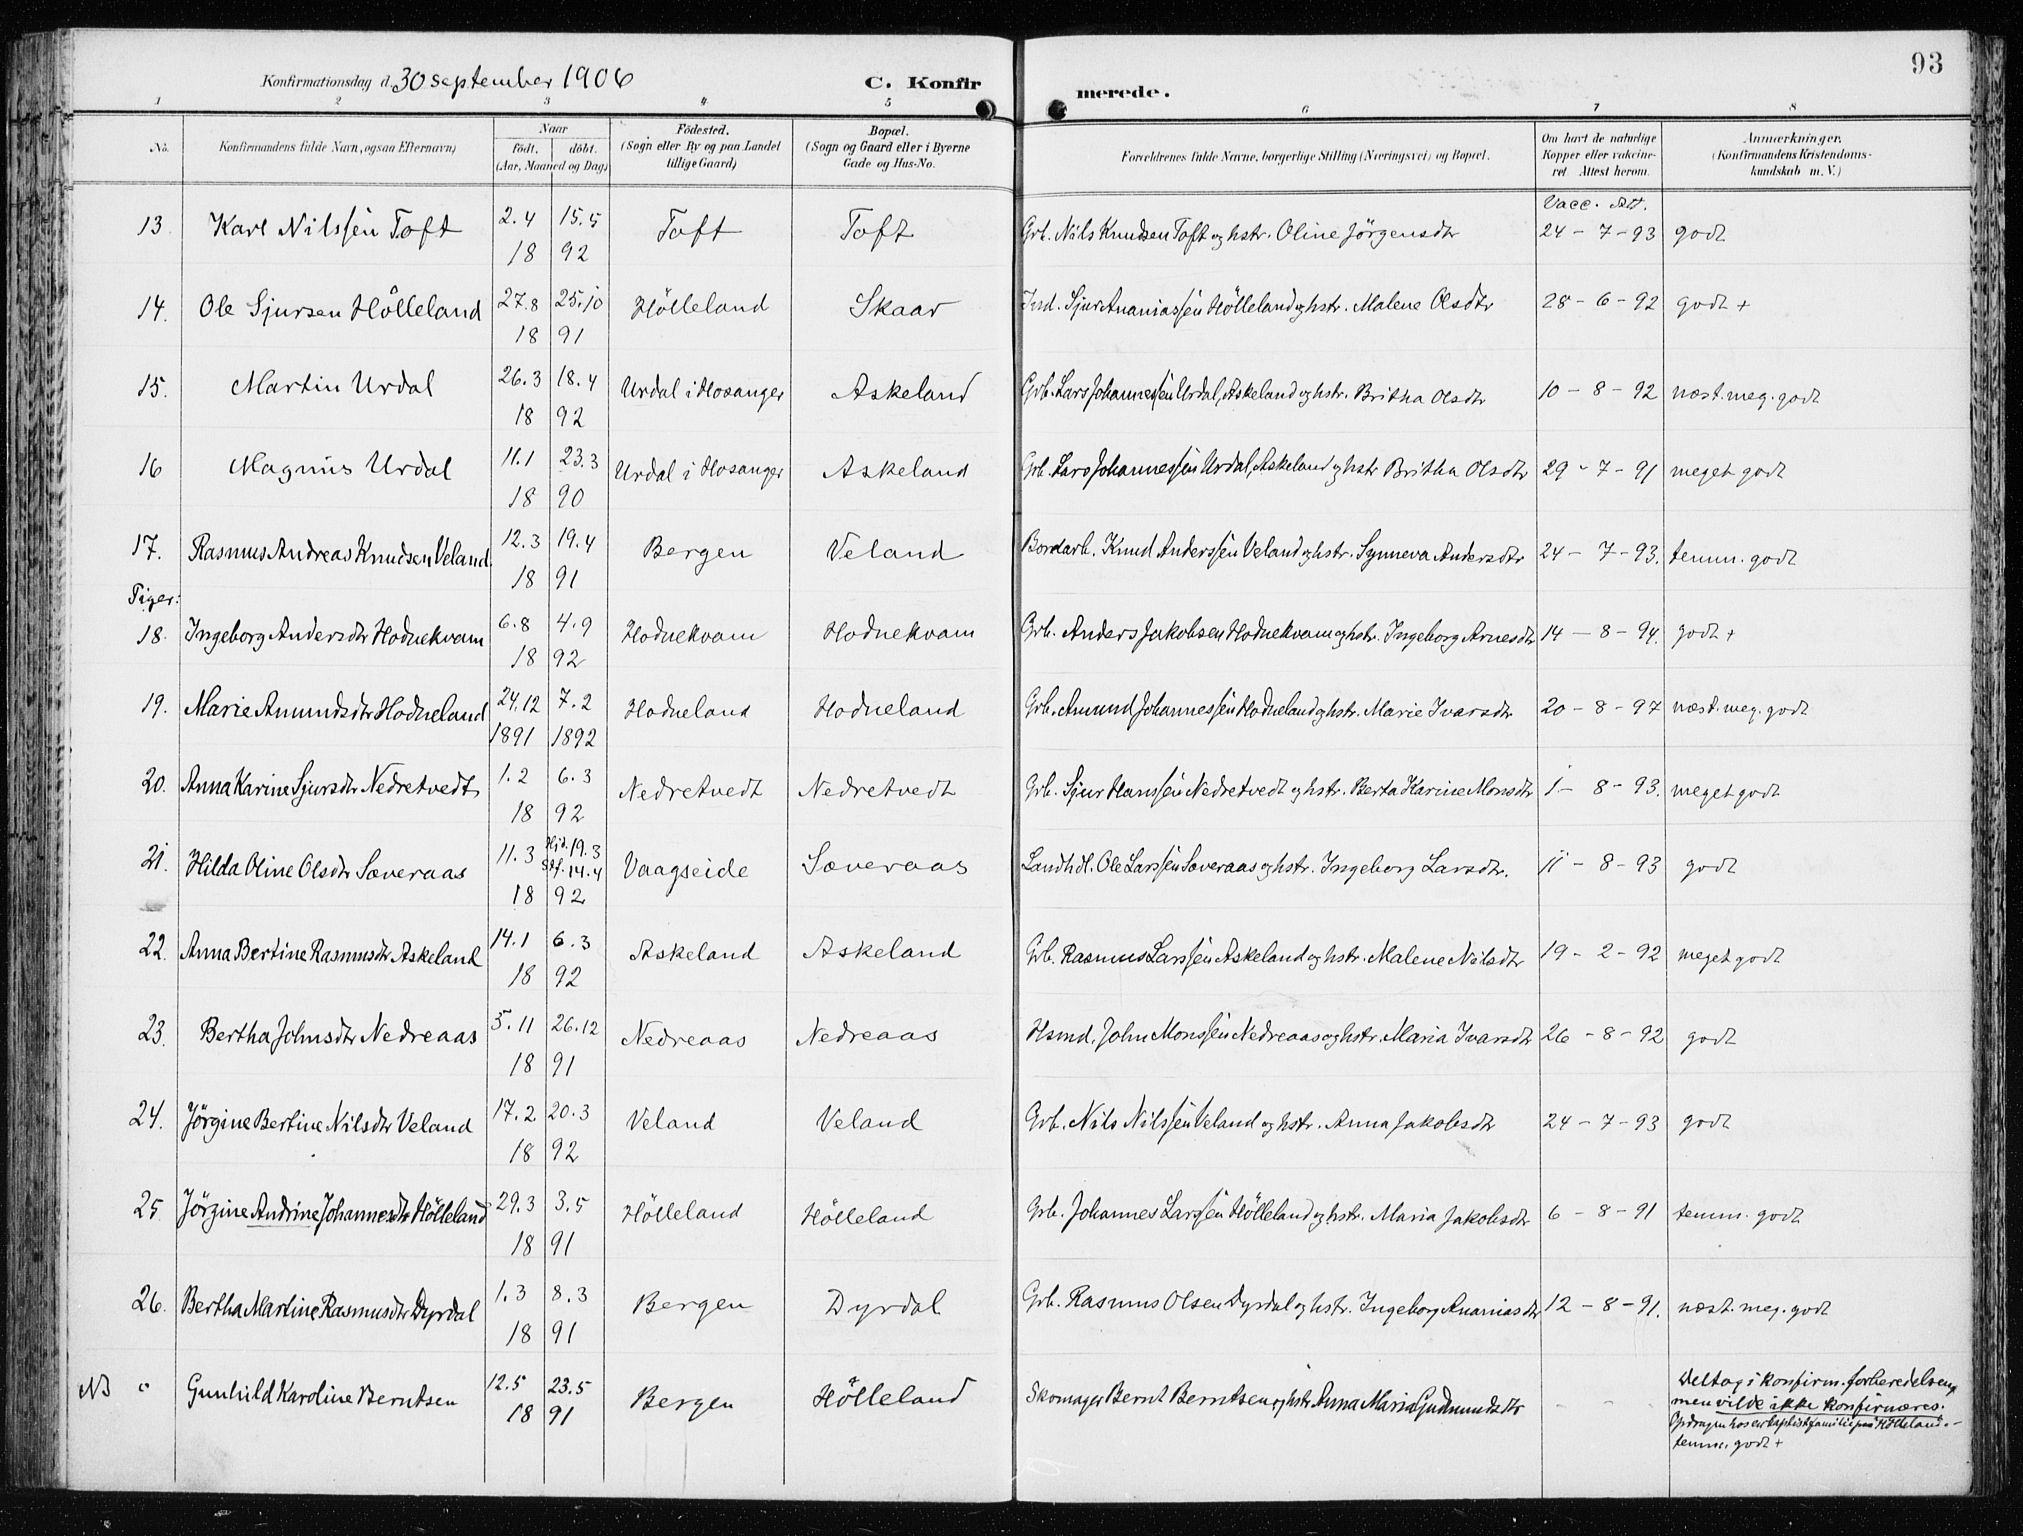 93
Konfirmationsdag d. 30 September 1906 C. Konfirmerede.
1 2 3 4 5 6 7 8
No. Konfirmandens fulde Navn, ogsaa Efternavn) Naar födt. döbt. (Aar, Maaned og Dag) Födested. (Sogn eller By og paa Landet tillige Gaard) Bopæl. (Sogn og Gaard eller i Byerne Gade og Hus-No. Forældrenes fulde Navne, borgerlige Stilling (Næringsvei) og Bopæl. Om havt de naturlige Kopper eller vakcineret. Attest herom. Anmerkninger. (Konfirmandens Kristendomskundskab m. V.)
Vacc. Att.
13 Karl Nilssen Toft 2.4 15.5 Toft Toft Grb. Nils Knudsen Toft og hstr. Oline Jörgensdtr 24 - 7 - 93 godt
18 92
14. Ole Sjursen Hölleland 27.8 25.10 Hölleland Skaar Ind. Sjur Ananiassen Hölleland og hstr. Malene Olsdtr 28 - 6 - 92 godt +
18 91
15. Martin Urdal 26.3 18.4 Urdal i Hosanger Askeland Grb. Lars Johannessen Urdal, Askeland og hstr. Britha Olsdtr 10 - 8 - 92 næst. meg. godt
18 92
16 Magnus Urdal 11.1 23.3 Urdal i Hosanger Askeland Grb. Lars Johannessen Urdal, Askeland og hstr Britha Olsdtr 29 - 7 - 91 meget godt
18 90
17. Rasmus Andreas Knudsen Veland 12.3 19.4 Bergen Veland Bordarb. Knud Anderssen Veland og hstr. Synneva Andersdtr 24 - 7 - 93. temm. godt
18 91
Piger:
18. Ingeborg Andersdtr Hodnekvam 6.8 4.9 Hodnekvam Hodnekvam Grb. Anders Jakobsen Hodnekvam og hstr. Ingeborg Arnesdtr 14 - 8 - 94. godt +
18 92
19. Marie Amundsdtr Hodneland 24.12 7.2 Hodneland Hodneland Grb. Amund Johannessen Hodneland og hstr. Marie Ivarsdtr 20 - 8 - 97 næst. meg. godt
1891 1892
20. Anna Karine Sjursdtr Nedretvedt 1.2 6.3 Nedretvedt Nedretvedt Grb. Sjur Hanssen Nedretvedt og hstr. Berta Karine Monsdtr 1 - 8 - 93. meget godt
18 92
21. Hilda Oline Olsdtr Sæveraas 11.3 Hjd. 19.3 Stf. 14.4 Vaagseide Sæveraas Landhdl. Ole Larssen Sæveraas og hstr. Ingeborg Larsdtr. 11 - 8 - 93 godt
18 92
22. Anna Bertine Rasmusdtr Askeland 14.1 6.3 Askeland Askeland Grb. Rasmus Larssen Askeland og hstr. Malene Nilsdtr 19 - 2 - 92 meget godt
18 92
23. Bertha Johnsdtr Nedreaas 5.11 26.12 Nedreaas Nedreaas Hsmd. John Monssen Nedreaas og hstr. Maria Ivarsdtr 26 - 8 - 92 godt
18 91
24. Jörgine Bertine Nilsdtr Veland 17.2 20.3 Veland Veland Grb. Nils Nilssen Veland og hstr. Anna Jakobsdtr 24 - 7 - 93 godt
18 92
25 Jörgine Andrine Johannesdtr Hölleland 29.3 3.5 Hölleland Hölleland Grb. Johannes Larssen Hölleland og hstr. Maria Jakobsdtr 6 - 8 - 91 temm. godt
18 91
26. Bertha Martine Rasmusdtr Dyrdal 1.3 8.3 Bergen Dyrdal Grb. Rasmus Olsen Dyrdal og hstr. Ingeborg Ananiasdtr 12 - 8 - 91. næst. meg. godt
18 91
NB " Gunhild Karoline Berntsen 12.5 23.5 Bergen Hölleland Skomager Bernt Berntsen og hstr Anna Maria Gudmundsdtr - - - Deltog i konfirm.forberedelsen,
18 91 men vilde ikke konfirmeres.
Opdragen hos en baptistfamilie paa Hölleland. -
temm. godt +